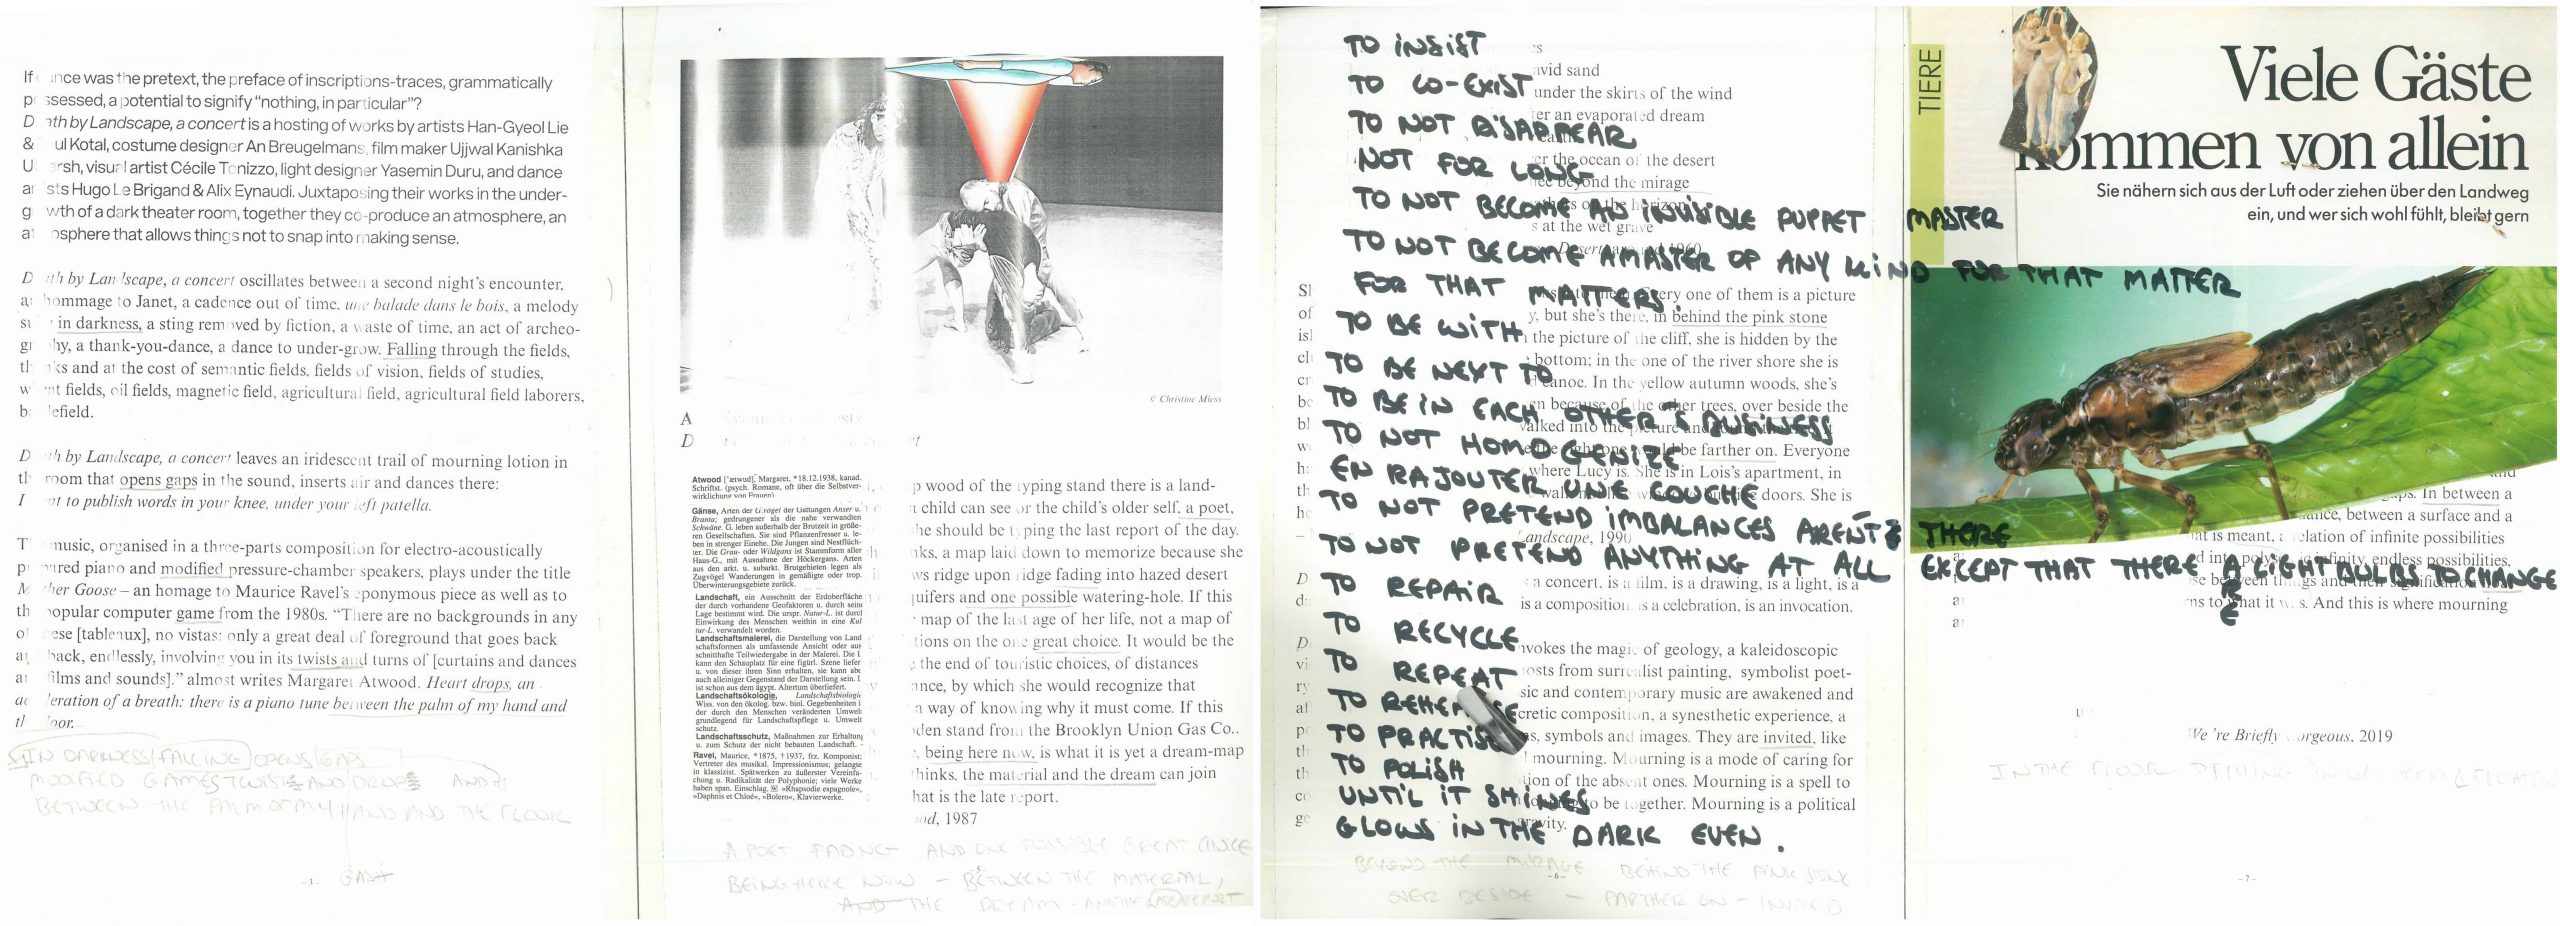 If nce was the pretext, the preface of inscriptions-traces, grammatically
p ssessed, a potential to signify "nothing, in particular"?
D ath by Landscape, a concert is a hosting of works by artists Han-Gyeol Lie
& ul Kotal, costume designer An Breugelmans, film maker Ujjwal Kanishka
U arsh, visual artist Cécile Tonizzo, light designer Yasemin Duru, and dance
ar sts Hugo Le Brigand & Alix Eynaudi. Juxtaposing their works in the under-
g wth of a dark theater room, together they co-produce an atmosphere, an
at osphere that allows things not to snap into making sense.
D th by Landscape, a concert oscillates between a second night's encounter,
a hommage to Janet, a cadence out of time, une balade dans le bois, a melody
st in darkness, a sting removed by fiction, a waste of time, an act of archeo-
gr hy, a thank-you-dance, a dance to under-grow. Falling through the fields,
th ks and at the cost of semantic fields, fields of vision, fields of studies,
w nt fields, oil fields, magnetic field, agricultural field, agricultural field laborers,
b lefield.
D th by Landscape, a concert leaves an iridescent trail of mourning lotion in
th room that opens gaps in the sound, inserts air and dances there:
I nt to publish words in your knee, under your left patella.
T music, organised in a three-parts composition for electro-acoustically
p ared piano and modified pressure-chamber speakers, plays under the title
M ther Goose – an homage to Maurice Ravel's eponymous piece as well as to
th popular computer game from the 1980s. "There are no backgrounds in any
of ese [tableaux], no vistas: only a great deal of foreground that goes back
a back, endlessly, involving you in its twists and turns of [curtains and dances
a films and sounds]." almost writes Margaret Atwood. Heart drops, an
ac leration of a breath: there is a piano tune between the palm of my hand and
tl loor.
IN DARKNESS FALLING OPENS GAPS
MODIFIED GAMES TWIST AND DROPS AND
BETWEEN THE PALM OF MY HAND AND THE FLOOR
© Christine Miess
A
D
Atwood ['ætwud], Margaret, *18.12.1938, kanad.
Schriftst. (psych. Romane, oft über die Selbstver-
wirklichung von Frauen).
Gänse, Arten der G.vögel der Gattungen Anser u.
Branta; gedrungener als die nahe verwandten
Schwäne. G. leben außerhalb der Brutzeit in größe-
ren Gesellschaften. Sie sind Pflanzenfresser u. le-
ben in strenger Einehe. Die Jungen sind Nestflüch-
ter. Die Grau- oder Wildgans ist Stammform aller
Haus-G., mit Ausnahme der Höckergans. Arten
aus den arkt. u. subarkt. Brutgebieten legen als
Zugvögel Wanderungen in gemäßigte oder trop.
Überwinterungsgebiete zurück.
Landschaft, ein Ausschnitt der Erdoberfläche
der durch vorhandene Geofaktoren u. durch seine
Lage bestimmt wird. Die urspr. Natur-L. ist durch
Einwirkung des Menschen weithin in eine Kul
tur-L. verwandelt worden.
Landschaftsmalerei, die Darstellung von Land
schaftsformen als umfassende Ansicht oder aus
schnitthafte Teilwiedergabe in der Malerei. Die L
kann den Schauplatz für eine figürl. Szene liefer
u. von dieser ihren Sinn erhalten, sie kann abe
auch alleiniger Gegenstand der Darstellung sein. I
ist schon aus dem ägypt. Altertum überliefert.
Landschaftsökologie, Landschaftsbiologie
Wiss. von den ökolog. bzw. biol. Gegebenheiten i
der durch den Menschen veränderten Umwelt
grundlegend für Landschaftspflege u. Umwelt
schutz.
Landschaftsschutz, Maßnahmen zur Erhaltung
u. zum Schutz der nicht bebauten Landschaft.
Ravel, Maurice, *1875, †1937, frz. Komponist;
Vertreter des musikal. Impressionismus; gelangte
in klassizist. Spätwerken zu äußerster Vereinfa-
chung u. Radikalität der Polyphonie; viele Werke
haben span. Einschlag. W »Rhapsodie espagnole«,
»Daphnis et Chloé«, »Bolero«, Klavierwerke.
p wood of the typing stand there is a land-
a child can see or the child's older self, a poet,
he should be typing the last report of the day.
nks, a map laid down to memorize because she
ws ridge upon ridge fading into hazed desert
quifers and one possible watering-hole. If this
map of the last age of her life, not a map of
tions on the one great choice. It would be the
the end of touristic choices, of distances
ance, by which she would recognize that
a way of knowing why it must come. If this
oden stand from the Brooklyn Union Gas Co..
, being here now, is what it is yet a dream-map
thinks, the material and the dream can join
hat is the late report.
od, 1987
A POET FADING AND ONE POSSIBLE GREAT CHOICE
BEING HERE NOW – BETWEEN THE MATERIAL,
AND THE DREAM
-5-
TO INSIST
TO CO-EXIST
TO NOT DISAPPEAR
NOT FOR LONG
TO NOT BECOME AN INVISIBLE PUPPET MASTER
TO NOT BECOME A MASTER OF ANY KIND FOR THAT MATTER
FOR THAT MATTERS.
TO BE WITH
TO BE NEXT TO
TO BE IN EACH OTHER'S BUSINESS
TO NOT HOMOGENIZE
EN RAJOUTER UNE COUCHE
TO NOT PRETEND IMBALANCES AREN'T THERE
TO NOT PRETEND ANYTHING AT ALL EXCEPT THAT THERE
TO REPAIR
TO RECYCLE
TO REPEAT
TO REHE SE
TO PRACTISE
TO POLISH
UNTIL IT SHINES
GLOWS IN THE DARK EVEN.
avid sand
under the skirts of the wind
er an evaporated dream
er the ocean of the desert
beyond the mirage
s at the wet grave
Every one of them is a picture
y, but she's there, in behind the pink stone
the picture of the cliff, she is hidden by the
bottom; in the one of the river shore she is
canoe. In the yellow autumn woods, she's
because of the other trees, over beside the
be farther on. Everyone
where Lucy is. She is in Lois's apartment, in
doors. She is
andscape, 1990
s a concert, is a film, is a drawing, is a light, is a
is a composition, is a celebration, is an invocation.
nvokes the magic of geology, a kaleidoscopic
osts from surrealist painting, symbolist poet-
sic and contemporary music are awakened and
cretic composition, a synesthetic experience, a
s, symbols and images. They are invited, like
mourning. Mourning is a mode of caring for
tion of the absent ones. Mourning is a spell to
to be together. Mourning is a political
gravity.
BEYOND THE MIRAGE BEHIND THE PINK STONE
OVER BESIDE – FARTHER ON – INVITED
-6-
TIERE
Viele Gäste
kommen von allein
Sie nähern sich aus der Luft oder ziehen über den Landweg
ein, und wer sich wohl fühlt, bleibt gern
In between a
between a surface and a
at is meant, a relation of infinite possibilities
infinity, endless possibilities,
what it was. And this is where mourning
We're Briefly orgeous, 2019
IN THE FLOOR
-7-